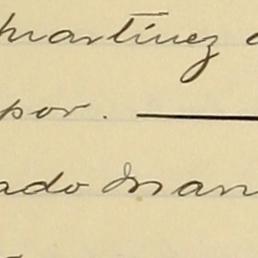 Martínez
por. —
ado Man